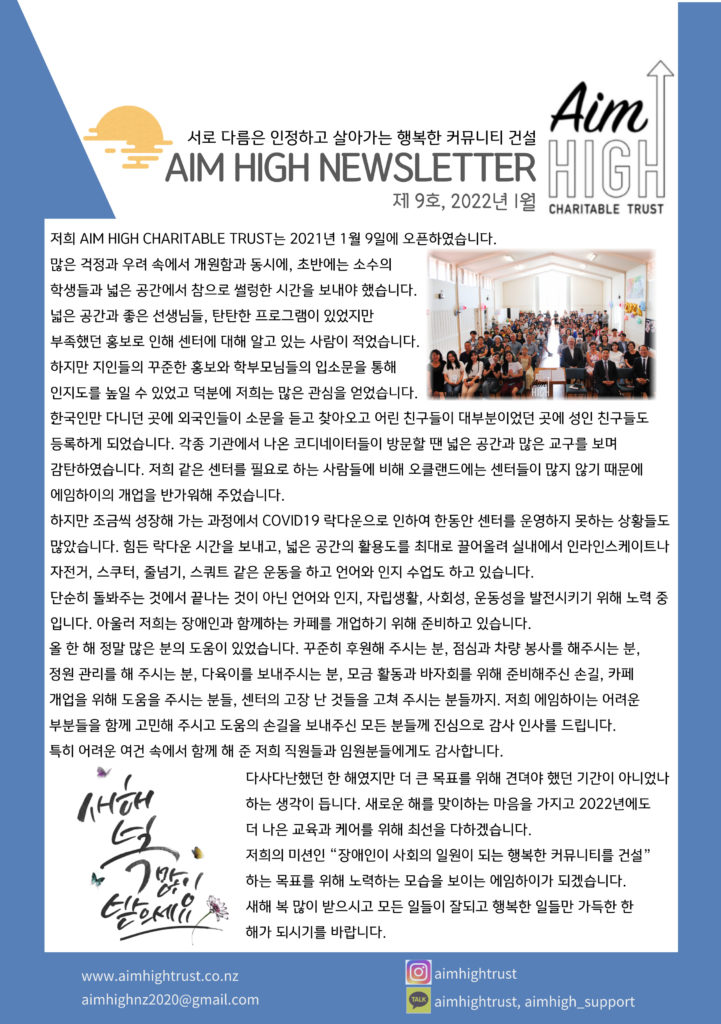 Aim
HIGH
CHARITABLE TRUST
서로 다름은 인정하고 살아가는 행복한 커뮤니티 건설
AIM HIGH NEWSLETTER
제 9호, 2022년 1월
저희 AIM HIGH CHARITABLE TRUST는 2021년 1월 9일에 오픈하였습니다.
많은 걱정과 우려 속에서 개원함과 동시에, 초반에는 소수의
학생들과 넓은 공간에서 참으로 썰렁한 시간을 보내야 했습니다.
넓은 공간과 좋은 선생님들, 탄탄한 프로그램이 있었지만
부족했던 홍보로 인해 센터에 대해 알고 있는 사람이 적었습니다.
하지만 지인들의 꾸준한 홍보와 학부모님들의 입소문을 통해
인지도를 높일 수 있었고 덕분에 저희는 많은 관심을 얻었습니다.
한국인만 다니던 곳에 외국인들이 소문을 듣고 찾아오고 어린 친구들이 대부분이었던 곳에 성인 친구들도
등록하게 되었습니다. 각종 기관에서 나온 코디네이터들이 방문할 땐 넓은 공간과 많은 교구를 보며
감탄하였습니다. 저희 같은 센터를 필요로 하는 사람들에 비해 오클랜드에는 센터들이 많지 않기 때문에
에임하이의 개업을 반가워해 주었습니다.
하지만 조금씩 성장해 가는 과정에서 COVID19 락다운으로 인하여 한동안 센터를 운영하지 못하는 상황들도
많았습니다. 힘든 락다운 시간을 보내고, 넓은 공간의 활용도를 최대로 끌어올려 실내에서 인라인스케이트나
자전거, 스쿠터, 줄넘기, 스쿼트 같은 운동을 하고 언어와 인지 수업도 하고 있습니다.
단순히 돌봐주는 것에서 끝나는 것이 아닌 언어와 인지, 자립생활, 사회성, 운동성을 발전시키기 위해 노력 중
입니다. 아울러 저희는 장애인과 함께하는 카페를 개업하기 위해 준비하고 있습니다.
올 한 해 정말 많은 분의 도움이 있었습니다. 꾸준히 후원해 주시는 분, 점심과 차량 봉사를 해주시는 분,
정원 관리를 해 주시는 분, 다육이를 보내주시는 분, 모금 활동과 바자회를 위해 준비해주신 손길, 카페
개업을 위해 도움을 주시는 분들, 센터의 고장 난 것들을 고쳐 주시는 분들까지. 저희 에임하이는 어려운
부분들을 함께 고민해 주시고 도움의 손길을 보내주신 모든 분들께 진심으로 감사 인사를 드립니다.
특히 어려운 여건 속에서 함께 해 준 저희 직원들과 임원분들에게도 감사합니다.
새해
복
많이
받으세요
다사다난했던 한 해였지만 더 큰 목표를 위해 견뎌야 했던 기간이 아니었나
하는 생각이 듭니다. 새로운 해를 맞이하는 마음을 가지고 2022년에도
더 나은 교육과 케어를 위해 최선을 다하겠습니다.
저희의 미션인 “장애인이 사회의 일원이 되는 행복한 커뮤니티를 건설”
하는 목표를 위해 노력하는 모습을 보이는 에임하이가 되겠습니다.
새해 복 많이 받으시고 모든 일들이 잘되고 행복한 일들만 가득한 한
해가 되시기를 바랍니다.
www.aimhightrust.co.nz
aimhighnz2020@gmail.com
aimhightrust
TALK
aimhightrust, aimhigh_support